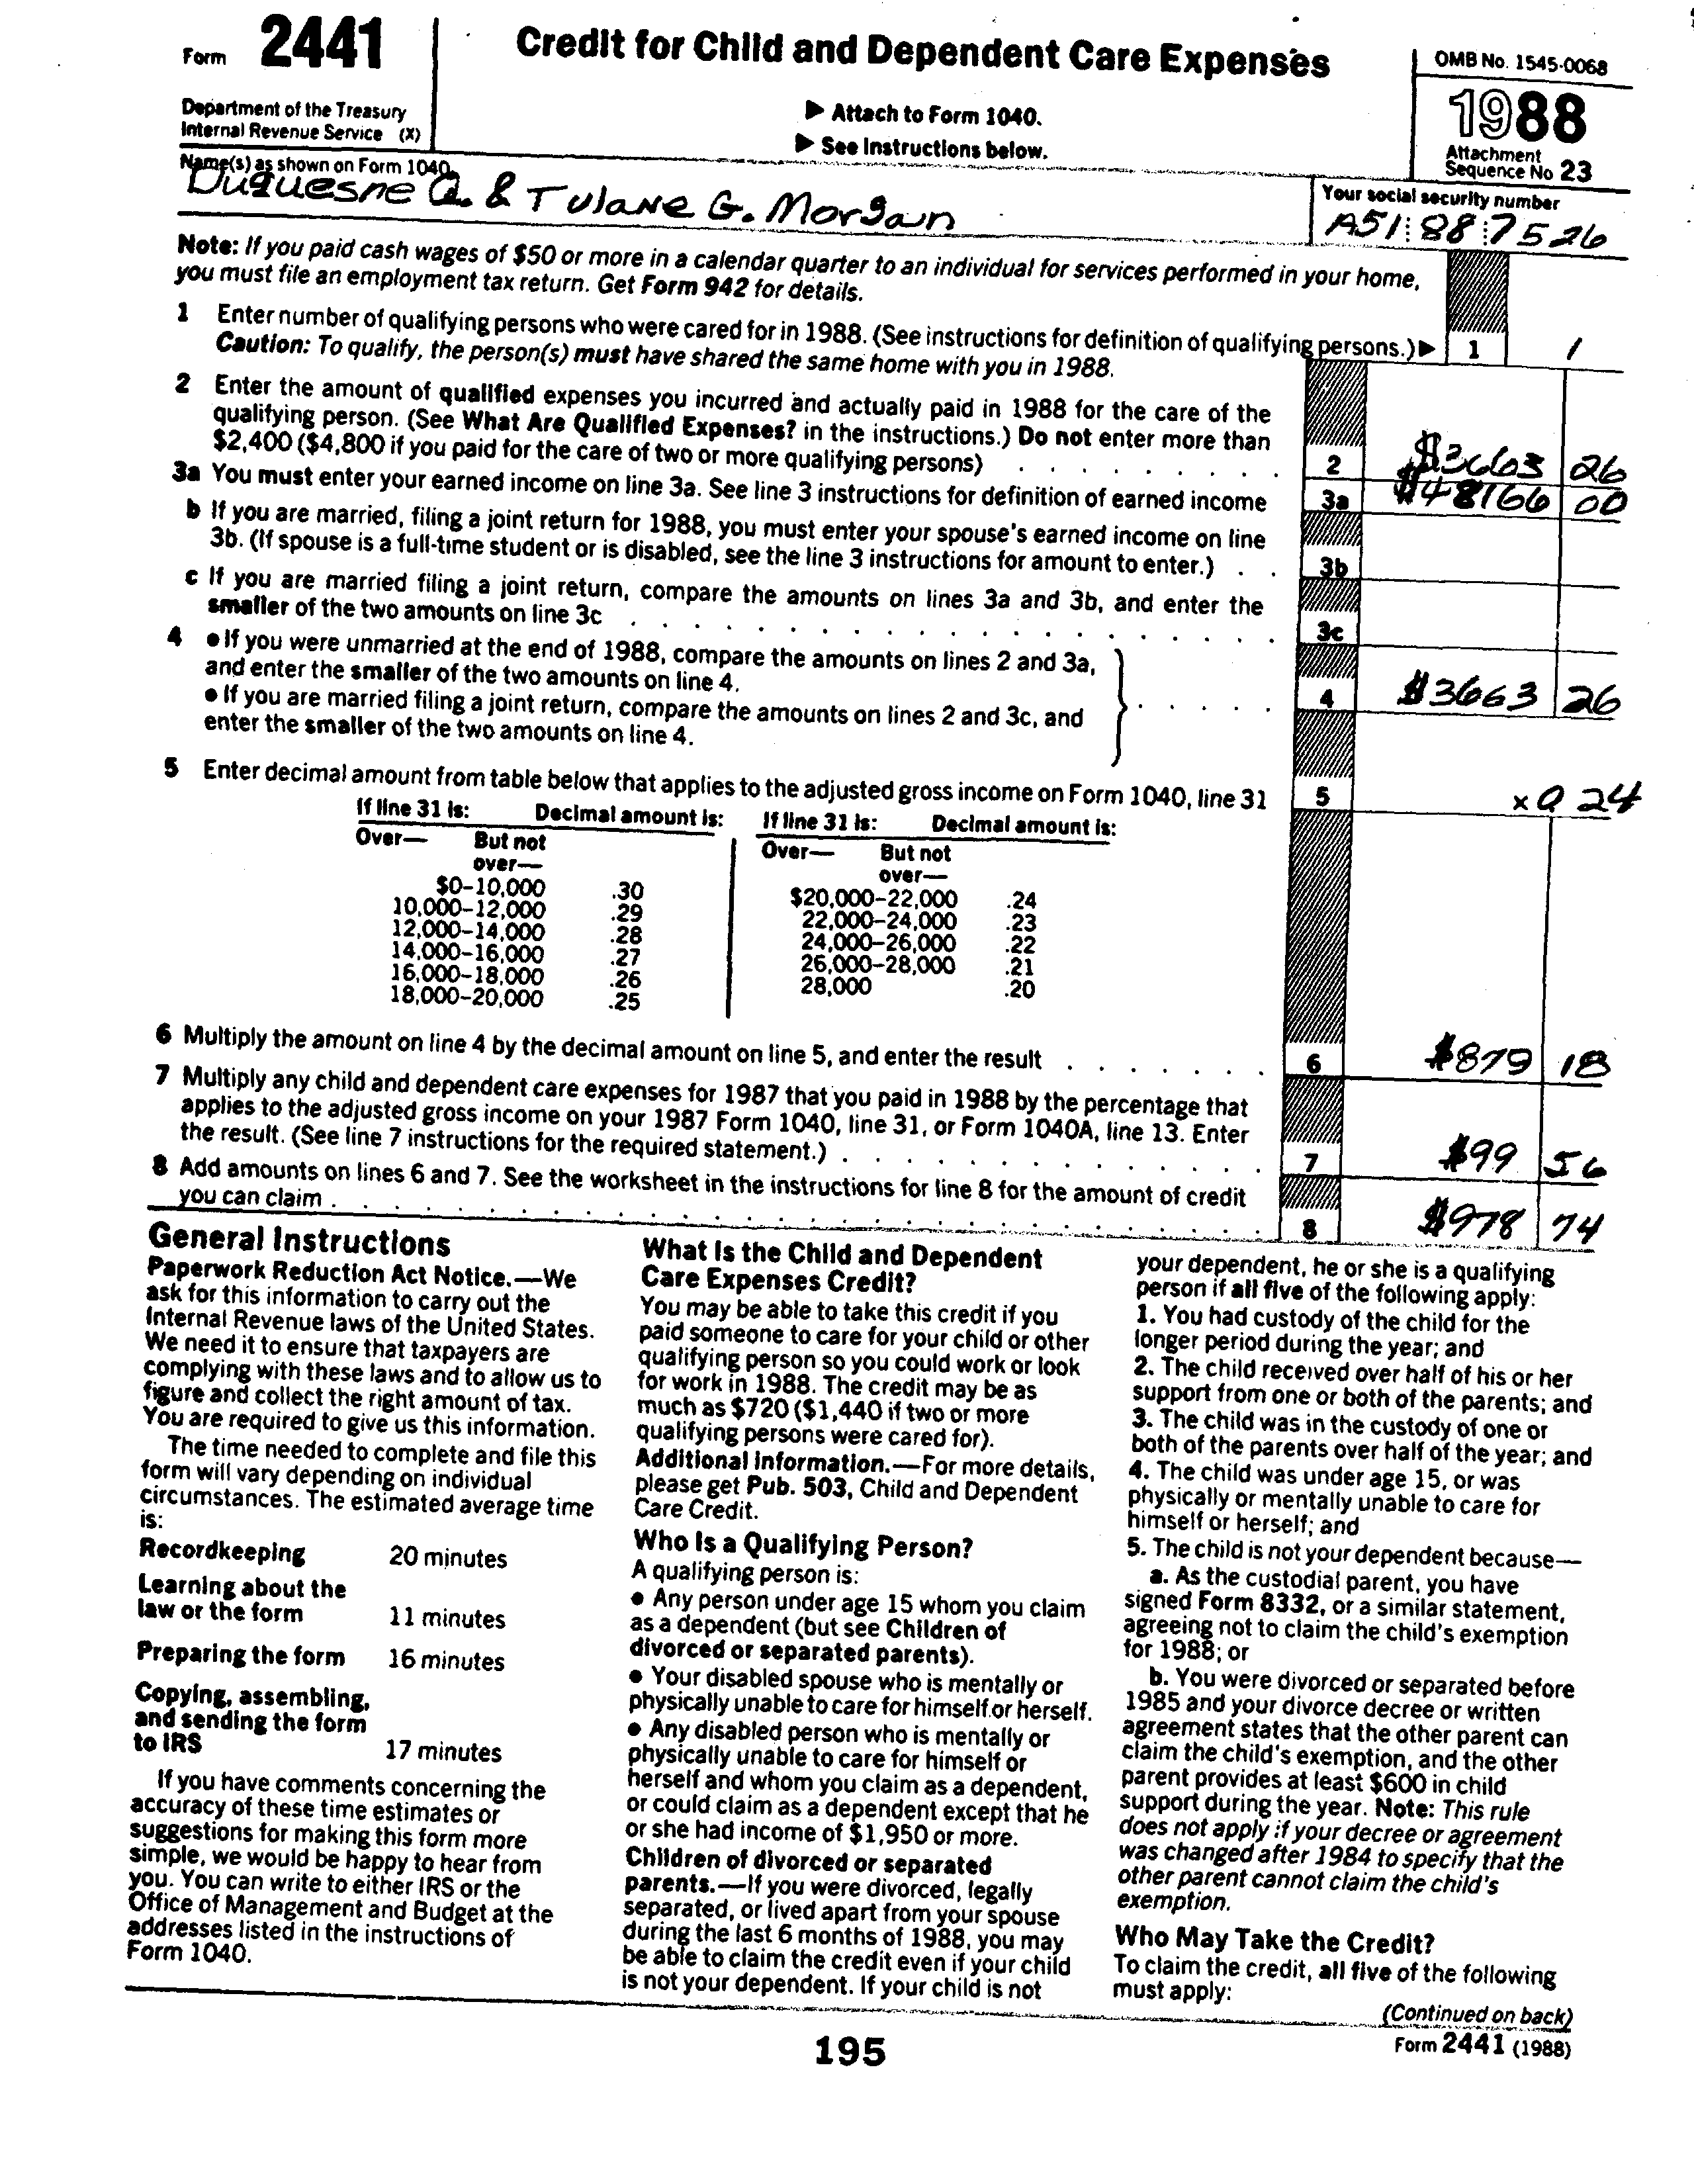 Form 2441
Credit for Child and Dependent Care Expenses
OMB No. 1545-0068
1988
Department of the Treasury
Internal Revenue Service (X)
▶ Attach to Form 1040.
▶ See Instructions below.
Attachment
Sequence No 23
Name(s) as shown on Form 1040
Duquesne Q. & Tulane G. Morgan
Your social security number
A51 88 7526
Note: If you paid cash wages of $50 or more in a calendar quarter to an individual for services performed in your home,
you must file an employment tax return. Get Form 942 for details.
1 Enter number of qualifying persons who were cared for in 1988. (See instructions for definition of qualifying persons.) ▶ 1 1
Caution: To qualify, the person(s) must have shared the same home with you in 1988.
2 Enter the amount of qualified expenses you incurred and actually paid in 1988 for the care of the
qualifying person. (See What Are Qualified Expenses? in the instructions.) Do not enter more than
$2,400 ($4,800 if you paid for the care of two or more qualifying persons) . . . . . . . . . 2 $3663 26
3a You must enter your earned income on line 3a. See line 3 instructions for definition of earned income 3a $48166 00
b If you are married, filing a joint return for 1988, you must enter your spouse's earned income on line
3b. (If spouse is a full-time student or is disabled, see the line 3 instructions for amount to enter.) . . 3b
c If you are married filing a joint return, compare the amounts on lines 3a and 3b, and enter the
smaller of the two amounts on line 3c . . . . . . . . . . . . . . . . . . . . . 3c
4 ● If you were unmarried at the end of 1988, compare the amounts on lines 2 and 3a,
and enter the smaller of the two amounts on line 4.
● If you are married filing a joint return, compare the amounts on lines 2 and 3c, and
enter the smaller of the two amounts on line 4. . . . . . 4 $3663 26
5 Enter decimal amount from table below that applies to the adjusted gross income on Form 1040, line 31 5 x 0 24
If line 31 is: Decimal amount is: If line 31 is: Decimal amount is:
Over— But not over— Over— But not over—
$0–10,000 .30 $20,000–22,000 .24
10,000–12,000 .29 22,000–24,000 .23
12,000–14,000 .28 24,000–26,000 .22
14,000–16,000 .27 26,000–28,000 .21
16,000–18,000 .26 28,000 .20
18,000–20,000 .25
6 Multiply the amount on line 4 by the decimal amount on line 5, and enter the result . . . . . . . 6 $879 18
7 Multiply any child and dependent care expenses for 1987 that you paid in 1988 by the percentage that
applies to the adjusted gross income on your 1987 Form 1040, line 31, or Form 1040A, line 13. Enter
the result. (See line 7 instructions for the required statement.) . . . . . . . . . . . . . . 7 $99 56
8 Add amounts on lines 6 and 7. See the worksheet in the instructions for line 8 for the amount of credit
you can claim . . . . . . . . . . . . . . . . . . . . . . . . . . . . . 8 $978 74
General Instructions
Paperwork Reduction Act Notice.—We
ask for this information to carry out the
Internal Revenue laws of the United States.
We need it to ensure that taxpayers are
complying with these laws and to allow us to
figure and collect the right amount of tax.
You are required to give us this information.
The time needed to complete and file this
form will vary depending on individual
circumstances. The estimated average time
is:
Recordkeeping 20 minutes
Learning about the
law or the form 11 minutes
Preparing the form 16 minutes
Copying, assembling,
and sending the form
to IRS 17 minutes
If you have comments concerning the
accuracy of these time estimates or
suggestions for making this form more
simple, we would be happy to hear from
you. You can write to either IRS or the
Office of Management and Budget at the
addresses listed in the instructions of
Form 1040.
What Is the Child and Dependent
Care Expenses Credit?
You may be able to take this credit if you
paid someone to care for your child or other
qualifying person so you could work or look
for work in 1988. The credit may be as
much as $720 ($1,440 if two or more
qualifying persons were cared for).
Additional Information.—For more details,
please get Pub. 503, Child and Dependent
Care Credit.
Who Is a Qualifying Person?
A qualifying person is:
● Any person under age 15 whom you claim
as a dependent (but see Children of
divorced or separated parents).
● Your disabled spouse who is mentally or
physically unable to care for himself or herself.
● Any disabled person who is mentally or
physically unable to care for himself or
herself and whom you claim as a dependent,
or could claim as a dependent except that he
or she had income of $1,950 or more.
Children of divorced or separated
parents.—If you were divorced, legally
separated, or lived apart from your spouse
during the last 6 months of 1988, you may
be able to claim the credit even if your child
is not your dependent. If your child is not
your dependent, he or she is a qualifying
person if all five of the following apply:
1. You had custody of the child for the
longer period during the year; and
2. The child received over half of his or her
support from one or both of the parents; and
3. The child was in the custody of one or
both of the parents over half of the year; and
4. The child was under age 15, or was
physically or mentally unable to care for
himself or herself; and
5. The child is not your dependent because—
a. As the custodial parent, you have
signed Form 8332, or a similar statement,
agreeing not to claim the child's exemption
for 1988; or
b. You were divorced or separated before
1985 and your divorce decree or written
agreement states that the other parent can
claim the child's exemption, and the other
parent provides at least $600 in child
support during the year. Note: This rule
does not apply if your decree or agreement
was changed after 1984 to specify that the
other parent cannot claim the child's
exemption.
Who May Take the Credit?
To claim the credit, all five of the following
must apply:
(Continued on back)
195
Form 2441 (1988)